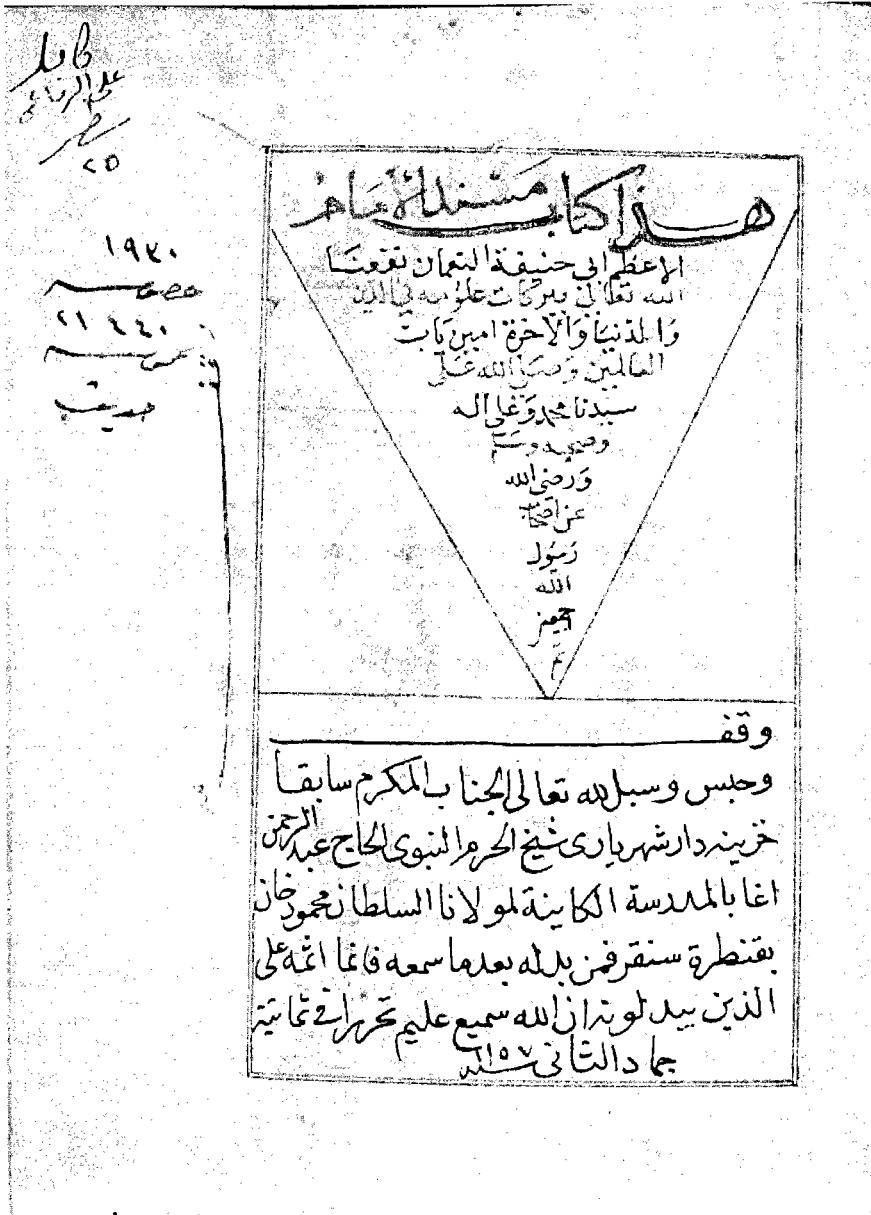 كامل
على الرفاعى
مصر
٢٥
١٩٣٠
خصوصيه
٢١٤٤٠
عموميه
حديث
هذا كتاب مسند الامام
الاعظم ابى حنيفة النعمان نفعنا
الله تعالى ببركات علومه فى الدين
والدنيا والاخرة امين يارب
العالمين وصلى الله على
سيدنا محمد وعلى اله
وصحبه وسلم
ورضى الله
عن اصحاب
رسول
الله
اجمعين
تم
وقف
وحبس وسبل لله تعالى الجناب المكرم سابقا
خزينه دار شهريارى شيخ الحرم النبوى الحاج عبد الرحمن
اغا بالمدرسة الكاينة لمولانا السلطان محمود خان
بقنطرة سنقر فمن بدله بعدما سمعه فانما اثمه على
الذين يبدلونه ان الله سميع عليم تحريرا فى ثمانية
جماد الثانى سنة ١١٥٧